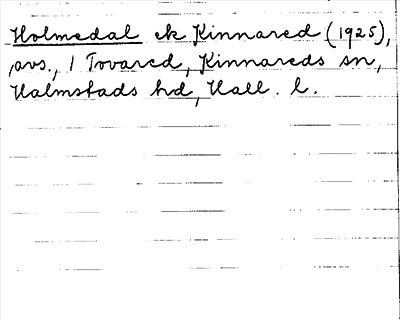 Holmedal ek Kinnared (1925),
avs., 1 Tovared, Kinnareds sn,
Halmstads hd, Hall. l.